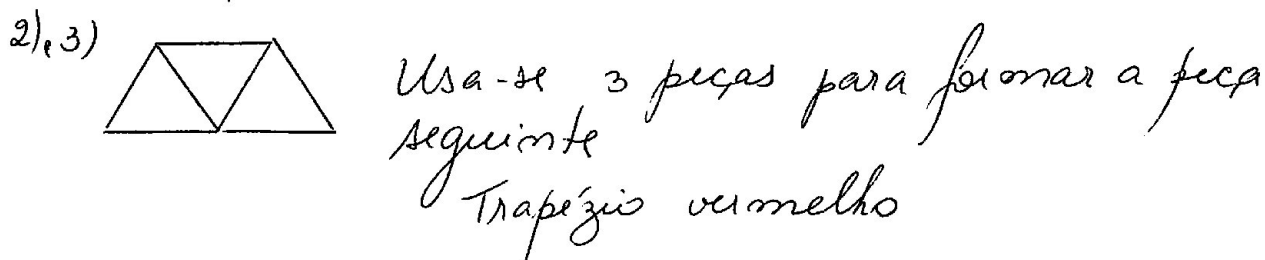 2), 3)
Usa-se 3 peças para formar a peça
seguinte
Trapézio vermelho